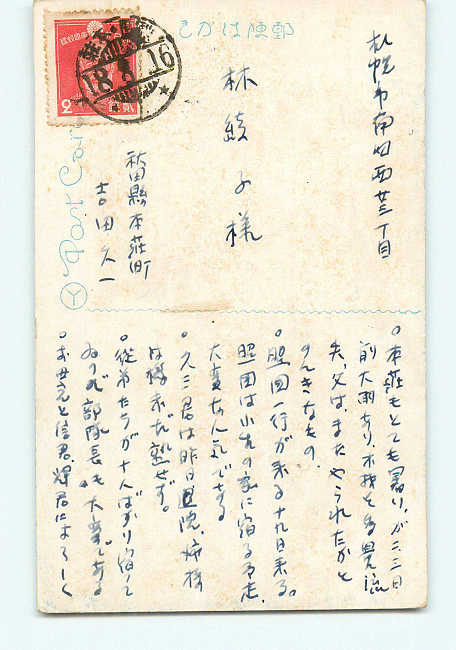 郵便はがき
Post Card
札幌市南四西廿三丁目
林綾子様
秋田縣本荘町
吉田久一
。本荘もとても暑い、が二三日
前大雨あり、木材を多異流
失、父は、またやられたかと
のんきなもの、
。照国一行が来る十九日来る。
照国は小生の家に宿る予定、
大変な人気である
。久三君は昨日退院、姉様
は様未だ熟せず。
。従弟たちが十人ばかり宿って
ゐるので部隊長も大変である
。お母さんと信君、輝君によろしく